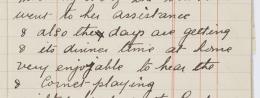 went to her assistance
& also they days are getting
& its dinner time at home
very enjoyable to hear the
& cornet playing